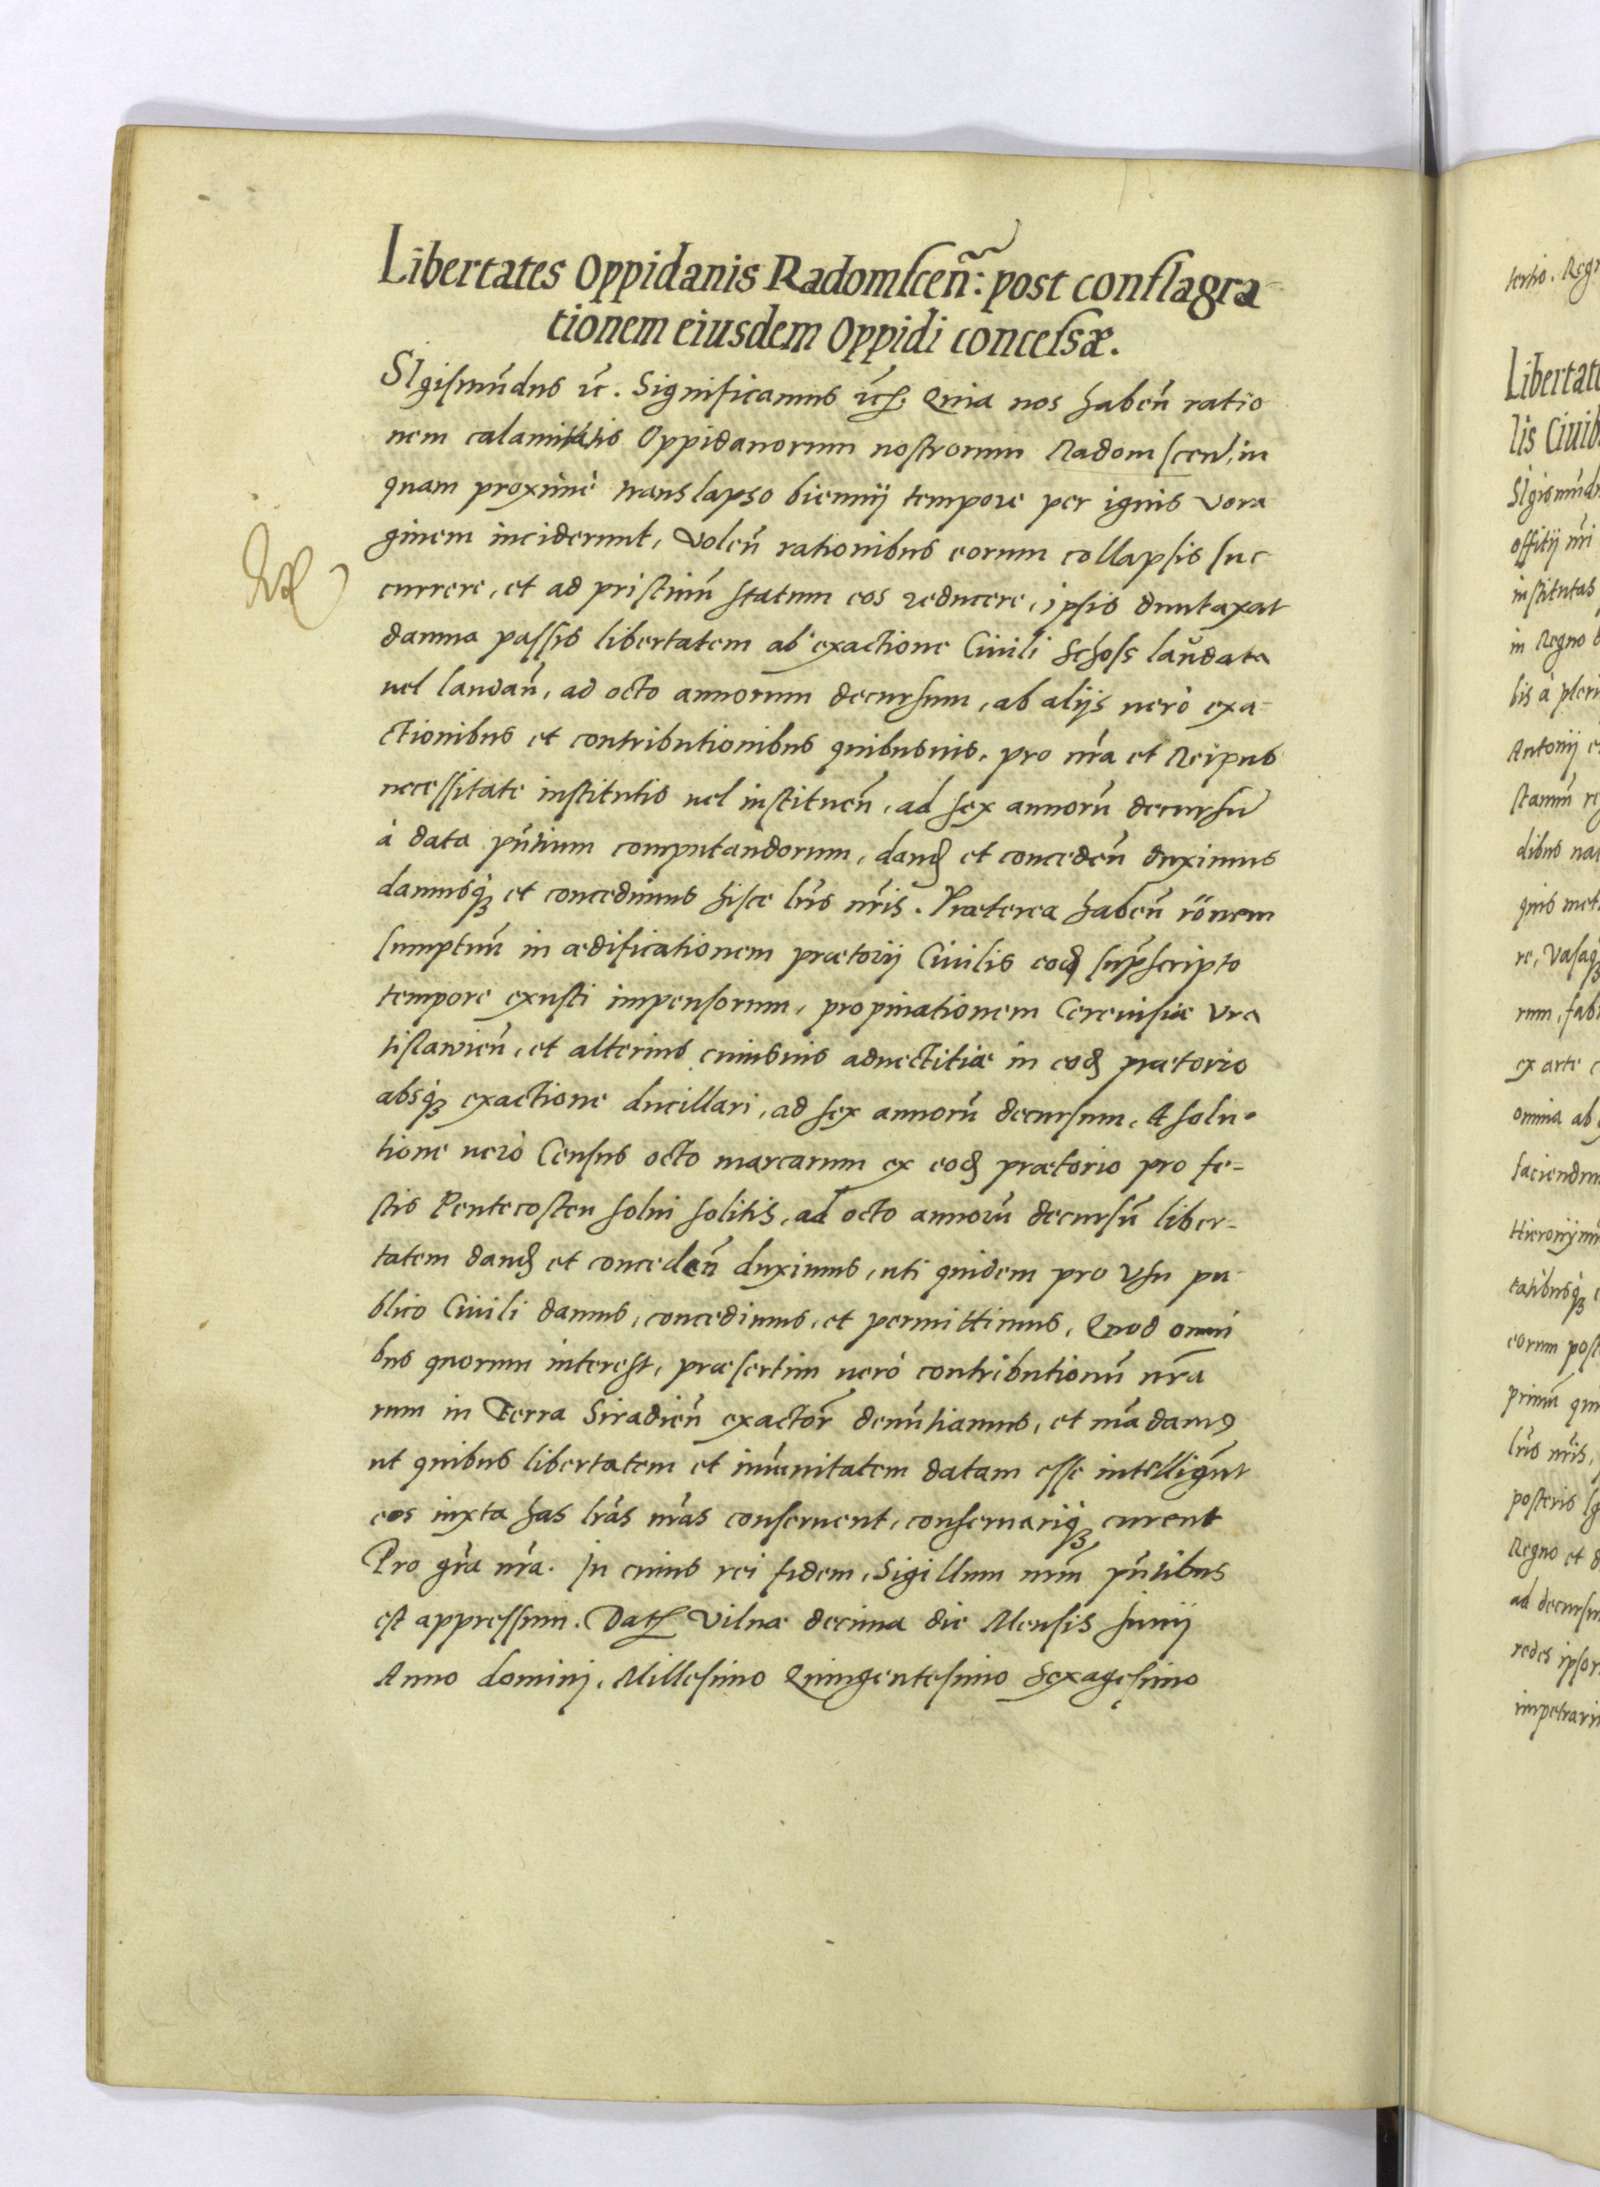 Libertates Oppidanis Radomscen̄: post conflagra-
tionem eiusdem Oppidi concessæ.
SIgismūdus ꝛc. Significamus ꝛcꝭ. Quia nos habeñ ratio
nem calamitatis Oppidanorum nostrorum Radomsceñ, in
quam proximè translapso biennij tempore per ignis vora
ginem inciderunt, Voleñ rationibus eorum collapsis suc
currere, et ad pristinū statum eos reducere, ipsis duntaxat
damna passis libertatem ab exactione Ciuili Schoss laudata
uel laudañ, ad octo annorum decursum, ab alijs uerò exa-
ctionibus et contributionibus quibusuis, pro nr̄a et Reipub
necessitate institutis uel institueñ, ad sex annorū decursū
à data pn̄tium computandorum, dand̄ et concedeñ duximus
damusqꝫ et concedimus hisce lr̄is nr̄is. Præterea habeñ rōnem
sumptuū in ædificationem prætorij Ciuilis eod̄ suprascripto
tempore exusti impensorum, propinationem Cereuisiæ Vra
tislauieñ, et alterius cuiusuis aduectitiæ in eod̄ prætorio
absqꝫ exactione ducillari, ad sex annorū decursum, A solu-
tione uerò Census octo marcarum ex eod̄ prætorio pro fe-
stis Pentecosten solui solitis, ad octo annorū decursū liber-
tatem dand̄ et concedeñ duximus, uti quidem pro Vsu pu-
blico Ciuili damus, concedimus, et permittimus. Quod omni
bus quorum interest, præsertim uerò contributionū nr̄a
rum in Terra Siradieñ exactor̄ denūtiamus, et mādamꝰ
ut quibus libertatem et imunitatem datam esse intelligūt
eos iuxta has lr̄as nr̄as conseruent, conseruariqꝫ curent
Pro gr̄a nr̄a. In cuius rei fidem, Sigillum nr̄m pn̄tibus
est appressum. Datꝭ Vilnæ decima die Mensis Junij
Anno domini, Millesimo Quingentesimo Sexagesimo
tertio. Regn
Libertate
lis Ciuib
SIgismūdu
offitij nr̄i
institutas
in Regno
bis à pleri
Antonij
stamm
dibus
quis met
re, Vasaqꝫ
rum, fab
ex arte
omnia ab
faciendum
Hieronijmu
tatibusqꝫ
eorum post
primū qui
lr̄is nr̄is,
posteris
Regno et
ad decursu
redes ipsor
impetrari